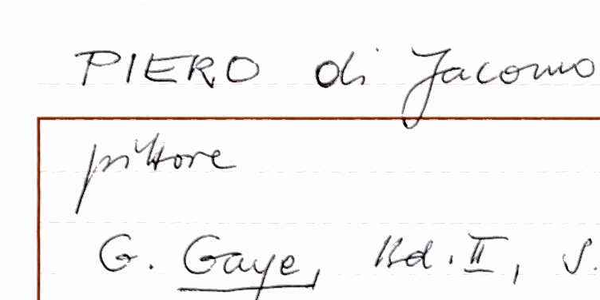 PIERO di Jacomo
pittore
G. Gaye, Bd. II, S.